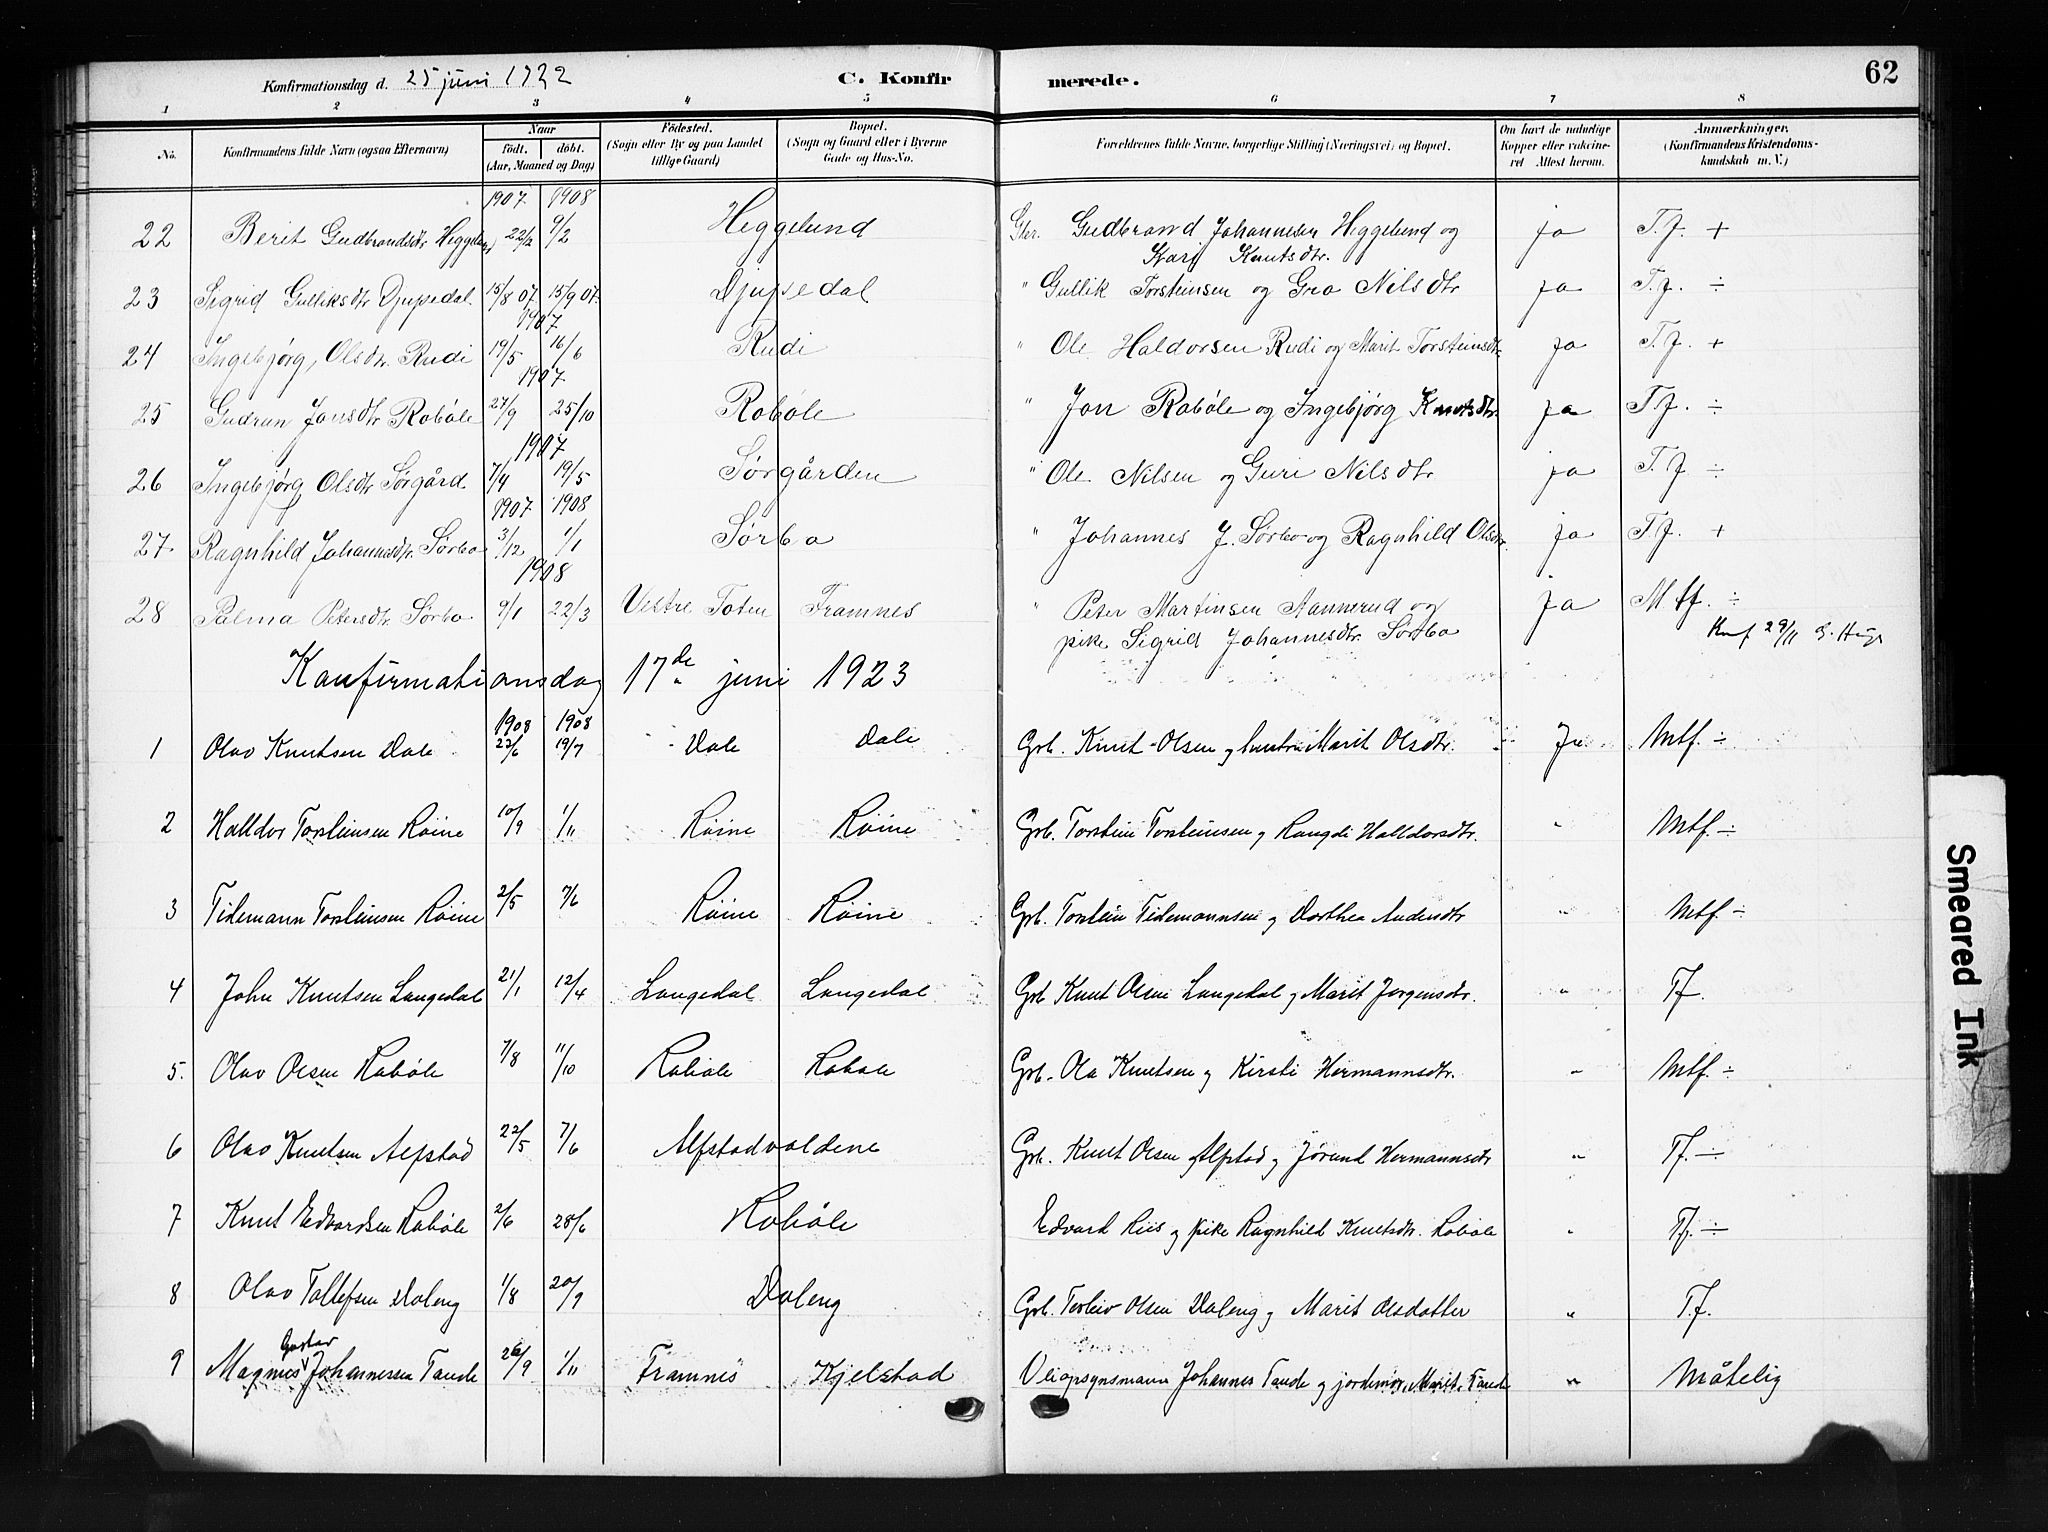 Konfirmationsdag d. 25 juni 1922 C. Konfirmerede. 62
1 2 3 4 5 6 7 8
No. Konfirmandens fulde Navn (ogsaa Efternavn) Naar födt. döbt. (Aar, Maaned og Dag) Födested. (Sogn eller By og paa Landet tillige Gaard) Bopæl. (Sogn og Gaard eller i Byerne Gade og Hus-No. Forældrenes fulde Navne, borgerlige Stilling (Næringsvei) og Bopæl. Om havt de naturlige Kopper eller vakcineret Attest herom. Anmærkninger. (Konfirmandens Kristendomskundskab m. V.)
1907 1908
22 Berit Gudbrandsdtr Heggelund 22/2 9/2 Heggelund Gbr. Gudbrand Johannesen Heggelund og ja T.f. +
Kari Knutsdtr.
23 Sigrid Gulliksdtr Djupedal 15/8 07. 15/9 07. Djupedal " Gullik Torsteinsen og Gro Nilsdtr ja T.f. ÷
1907
24 Ingebjørg, Olsdtr. Rudi 19/5 16/6 Rudi " Ole Haldorsen Rudi og Marit Torsteinsdtr ja T.f. +
1907
25 Gudrun Jonsdtr Robøle 27/9 25/10 Robøle " Jon Robøle og Ingebjørg Knutsdtr. ja T.f. ÷
1907
26 Ingebjørg Olsdtr Sørgård 7/4 19/5 Sørgården " Ole Nilsen og Guri Nilsdtr ja T.f ÷
1907 1908
27. Ragnhild Johannesdtr. Sørbo 3/12 1/1 Sørbo " Johannes J. Sørbo og Ragnhild Olsdtr. ja T.f. +
1908
28 Palma Petersdtr. Sørbo 9/1 22/3 Vestre Toten Framnes " Peter Martinsen Aannerud og ja Mtf. ÷
pike Sigrid Johannesdtr. Sørbo Konf 29/11
Konfirmationsdag 17de juni 1923
1908 1908
1 Olav Knutsen Dale 23/6 19/7 Dale Dale Grb. Knut Olsen og hustru Marit Olsdtr. Ja Mtf. ÷
2 Halldor Torsteinsen Røine 10/9 1/11 Røine Røine Grb. Torstein Torsteinsen og Rangdi Halldorsdtr. " Mtf. ÷
3 Tidemann Torsteinsen Røine 2/5 7/6 Røine Røine Grb. Torstein Tidemannsen og Dorthea Andersdtr " Mtf ÷
4 John Knutsen Langedal 21/1 12/4 Langedal Langedal Grb Knut Olsen Langedal og Marit Jørgensdtr. " Tf.
5. Olav Olsen Robøle 7/8 11/10 Robøle Robøle Grb. Ola Knutsen og Kirsti Hermannsdtr. " Mtf. ÷
6 Olav Knutsen Alfstad 22/5 7/6 Alfstadvoldene Grb. Knut Olsen Alfstad og Jørund Hermannsdtr " Tf. ÷
7 Knut Edvardsen Robøle 2/6 28/6 Robøle Edvard Riis og pike Ragnhild Knutsdtr. Robøle " Tf. ÷
8 Olav Tollefsen Valeng 1/8 20/9 Valeng Grb. Torleiv Olsen Valeng og Marit Olsdatter " T.f.
9 Magnus Gustav Johannessen Tande 26/9 1/11 Framnes Kjelstad Veiopsynsmann Johannes Tande og jordmor Marit Tande " Måtelig
Smeared Ink